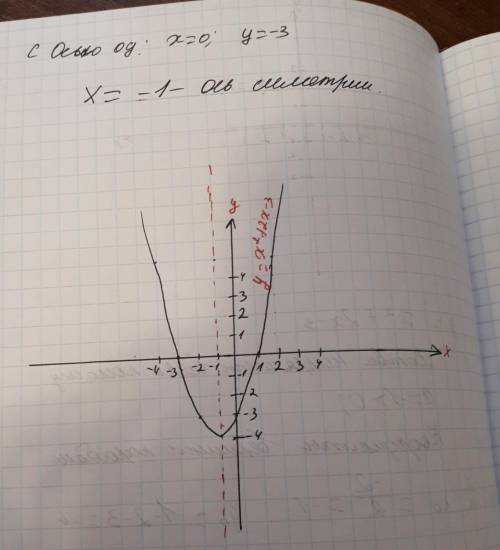 с осью оу: x=0; y=-3
x = -1 - ось симметрии.
y
y = x²+2x-3
4
3
2
1
-4 -3 -2 -1 1 2 3 4 x
-1
-2
-3
-4